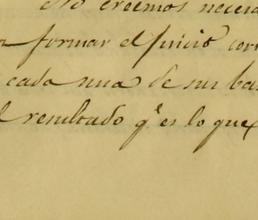 No creemos necesa
a formar el juicio corr
cada una de sus bas
l resultado q.e es lo que